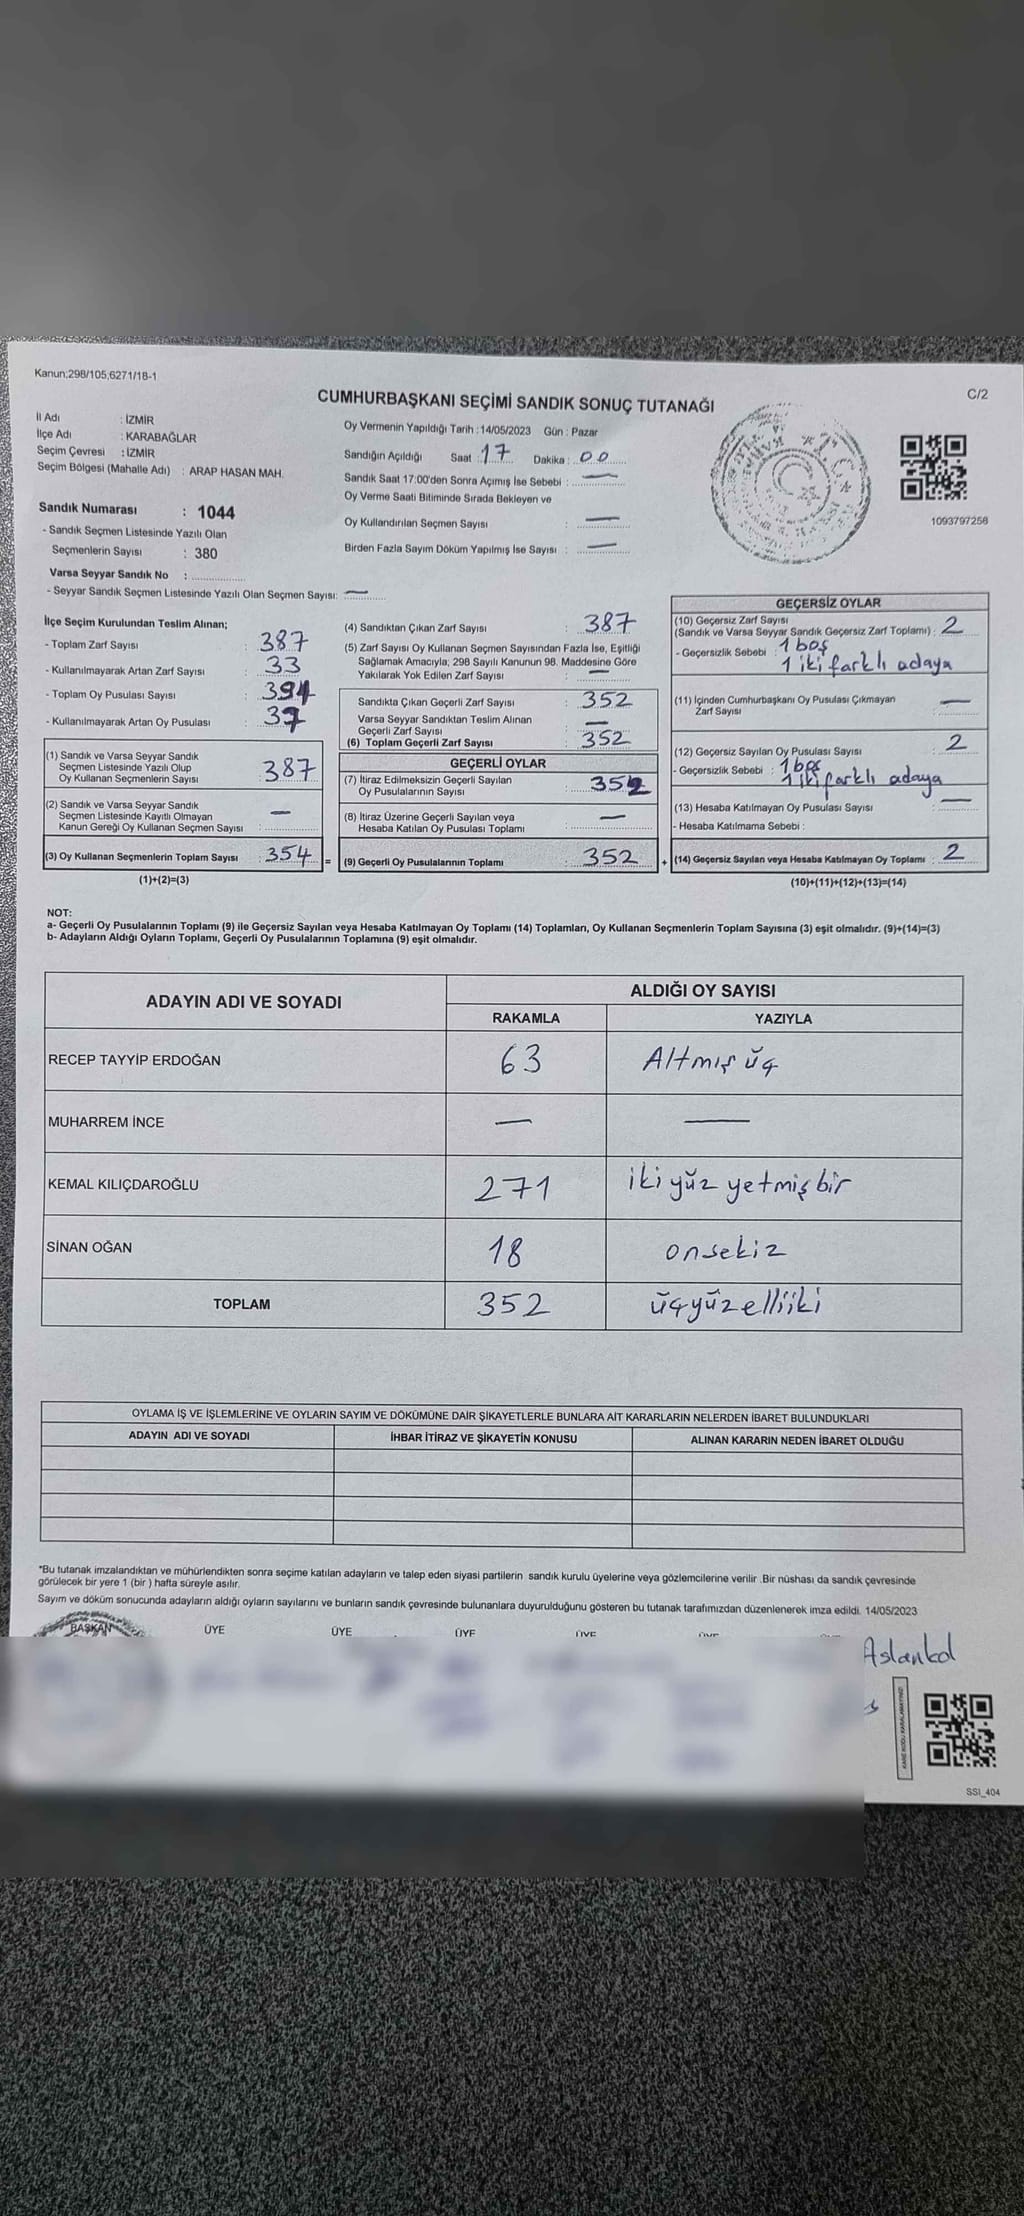 Kanun;298/105,6271/18-1
C/2
CUMHURBAŞKANI SEÇİMİ SANDIK SONUÇ TUTANAĞI
İl Adı : İZMİR
İlçe Adı : KARABAĞLAR
Seçim Çevresi : İZMİR
Seçim Bölgesi (Mahalle Adı) : ARAP HASAN MAH.
Sandık Numarası : 1044
- Sandık Seçmen Listesinde Yazılı Olan
Seçmenlerin Sayısı : 380
Varsa Seyyar Sandık No :
- Seyyar Sandık Seçmen Listesinde Yazılı Olan Seçmen Sayısı: —
Oy Vermenin Yapıldığı Tarih : 14/05/2023 Gün : Pazar
Sandığın Açıldığı Saat : 17 Dakika : 00
Sandık Saat 17:00'den Sonra Açımış İse Sebebi : —
Oy Verme Saati Bitiminde Sırada Bekleyen ve
Oy Kullandırılan Seçmen Sayısı : —
Birden Fazla Sayım Döküm Yapılmış İse Sayısı : —
T.C.
1093797256
İlçe Seçim Kurulundan Teslim Alınan;
- Toplam Zarf Sayısı : 387
- Kullanılmayarak Artan Zarf Sayısı : 33
- Toplam Oy Pusulası Sayısı : 391
- Kullanılmayarak Artan Oy Pusulası : 37
(1) Sandık ve Varsa Seyyar Sandık
Seçmen Listesinde Yazılı Olup
Oy Kullanan Seçmenlerin Sayısı : 387
(2) Sandık ve Varsa Seyyar Sandık
Seçmen Listesinde Kayıtlı Olmayan
Kanun Gereği Oy Kullanan Seçmen Sayısı : —
(3) Oy Kullanan Seçmenlerin Toplam Sayısı : 354 =
(1)+(2)=(3)
(4) Sandıktan Çıkan Zarf Sayısı : 387
(5) Zarf Sayısı Oy Kullanan Seçmen Sayısından Fazla İse, Eşitliği
Sağlamak Amacıyla; 298 Sayılı Kanunun 98. Maddesine Göre
Yakılarak Yok Edilen Zarf Sayısı : —
Sandıkta Çıkan Geçerli Zarf Sayısı : 352
Varsa Seyyar Sandıktan Teslim Alınan
Geçerli Zarf Sayısı : —
(6) Toplam Geçerli Zarf Sayısı : 352
GEÇERLİ OYLAR
(7) İtiraz Edilmeksizin Geçerli Sayılan
Oy Pusulalarının Sayısı : 352
(8) İtiraz Üzerine Geçerli Sayılan veya
Hesaba Katılan Oy Pusulası Toplamı : —
(9) Geçerli Oy Pusulalarının Toplamı : 352 +
GEÇERSİZ OYLAR
(10) Geçersiz Zarf Sayısı
(Sandık ve Varsa Seyyar Sandık Geçersiz Zarf Toplamı) : 2
- Geçersizlik Sebebi : 1 boş
1 iki farklı adaya
(11) İçinden Cumhurbaşkanı Oy Pusulası Çıkmayan
Zarf Sayısı : —
(12) Geçersiz Sayılan Oy Pusulası Sayısı : 2
- Geçersizlik Sebebi : 1 boş
1 iki farklı adaya
(13) Hesaba Katılmayan Oy Pusulası Sayısı : —
- Hesaba Katılmama Sebebi :
(14) Geçersiz Sayılan veya Hesaba Katılmayan Oy Toplamı : 2
(10)+(11)+(12)+(13)=(14)
NOT:
a- Geçerli Oy Pusulalarının Toplamı (9) ile Geçersiz Sayılan veya Hesaba Katılmayan Oy Toplamı (14) Toplamları, Oy Kullanan Seçmenlerin Toplam Sayısına (3) eşit olmalıdır. (9)+(14)=(3)
b- Adayların Aldığı Oyların Toplamı, Geçerli Oy Pusulalarının Toplamına (9) eşit olmalıdır.
ADAYIN ADI VE SOYADI
ALDIĞI OY SAYISI
RAKAMLA YAZIYLA
RECEP TAYYİP ERDOĞAN 63 Altmış üç
MUHARREM İNCE — —
KEMAL KILIÇDAROĞLU 271 iki yüz yetmiş bir
SİNAN OĞAN 18 onsekiz
TOPLAM 352 üçyüzelliiki
OYLAMA İŞ VE İŞLEMLERİNE VE OYLARIN SAYIM VE DÖKÜMÜNE DAİR ŞİKAYETLERLE BUNLARA AİT KARARLARIN NELERDEN İBARET BULUNDUKLARI
ADAYIN ADI VE SOYADI İHBAR İTİRAZ VE ŞİKAYETİN KONUSU ALINAN KARARIN NEDEN İBARET OLDUĞU
*Bu tutanak imzalandıktan ve mühürlendikten sonra seçime katılan adayların ve talep eden siyasi partilerin sandık kurulu üyelerine veya gözlemcilerine verilir .Bir nüshası da sandık çevresinde
görülecek bir yere 1 (bir ) hafta süreyle asılır.
Sayım ve döküm sonucunda adayların aldığı oyların sayılarını ve bunların sandık çevresinde bulunanlara duyurulduğunu gösteren bu tutanak tarafımızdan düzenlenerek imza edildi. 14/05/2023
BAŞKAN ÜYE ÜYE ÜYE ÜYE
KARE KODU KARALAMAYINIZ!
SSI_404